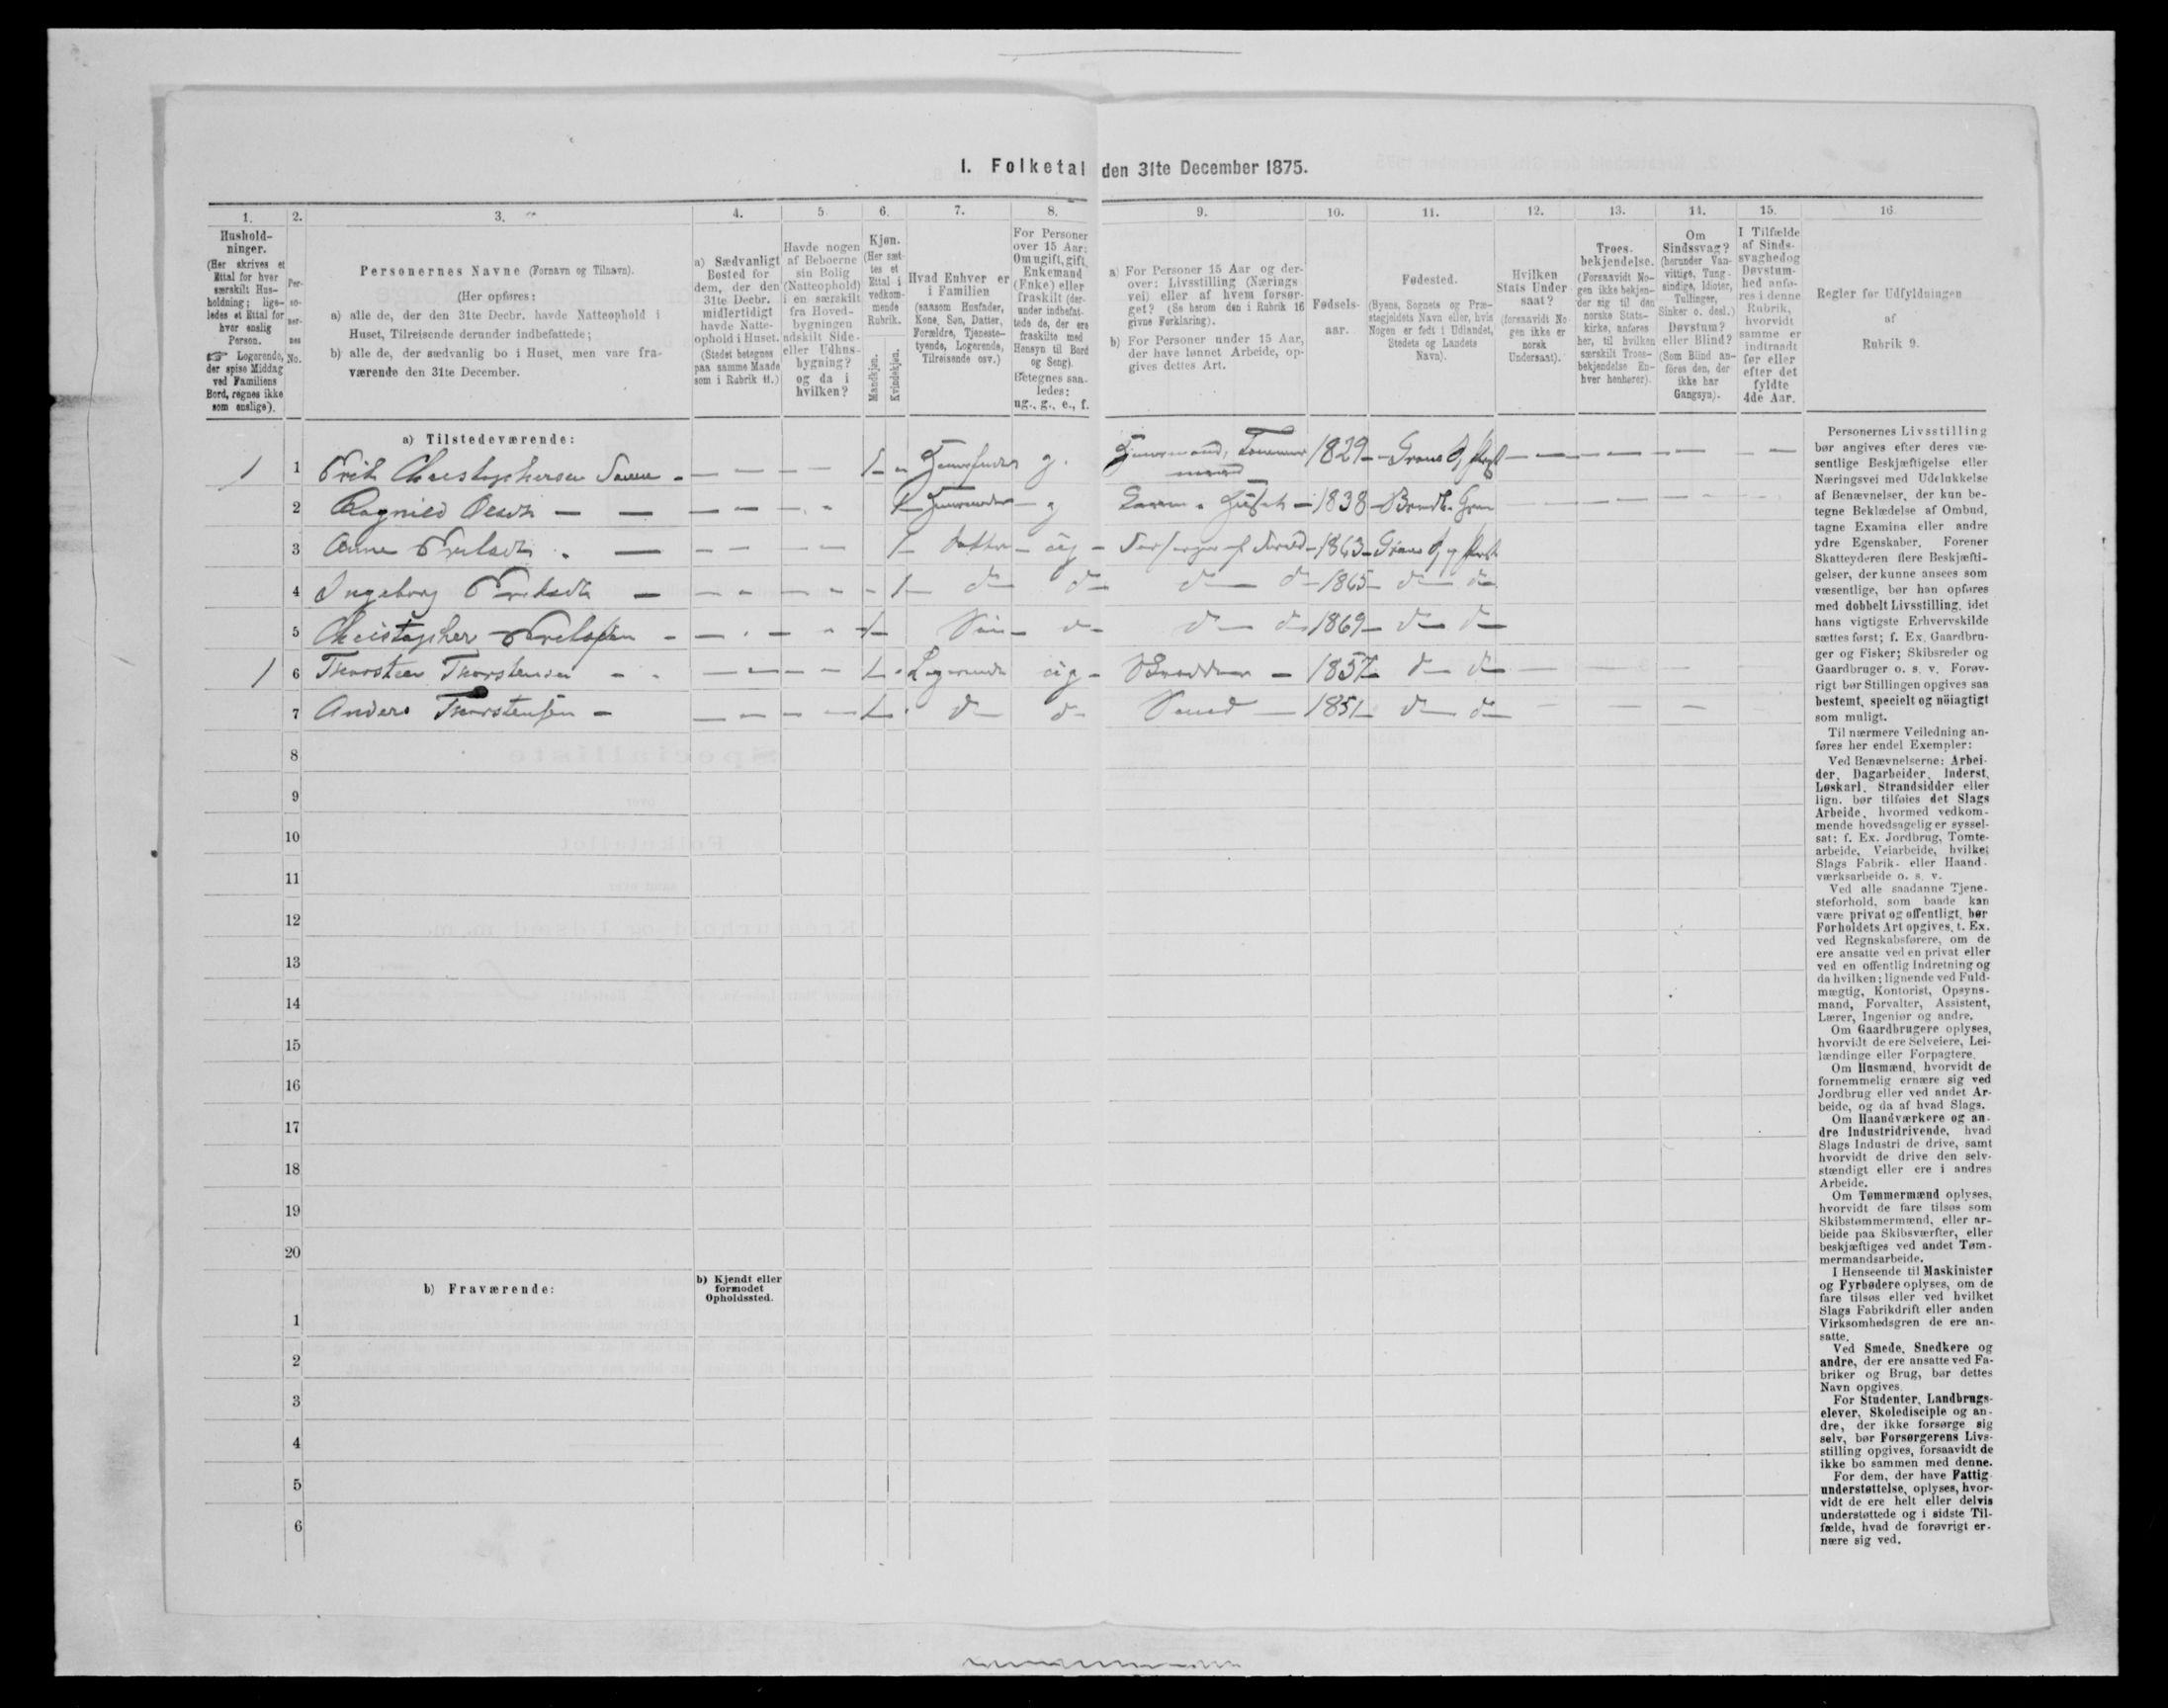 I. Folketal den 31te December 1875.
1.
2.
3.
4.
5
6.
7.
8.
9.
10.
11.
12.
13.
14.
15.
16
Hushold-
ninger.
(Her skrives et
Ettal for hver
særskilt Hus-
holdning; lige-
ledes et Ettal for
hver enslig
Person.
☞ Logerende,
der spise Middag
ved Familiens
Bord, regnes ikke
som enslige).
Per-
so-
ner-
nes
No.
Personernes Navne (Fornavn og Tilnavn).
(Her opføres:
a) alle de, der den 31te Decbr. havde Natteophold i
Huset, Tilreisende derunder indbefattede;
b) alle de, der sædvanlig bo i Huset, men vare fra-
værende den 31te December.
a) Sædvanligt
Bosted for
dem, der den
31te Decbr.
midlertidigt
havde Natte-
ophold i Huset.
(Stedet betegnes
paa samme Maade
som i Rubrik 11.)
Havde nogen
af Beboerne
sin Bolig
(Natteophold)
i en særskilt
fra Hoved-
bygningen
adskilt Side-
eller Udhus-
bygning?
og da i
hvilken?
Kjøn.
(Her sæt-
tes et
Ettal i
vedkom-
mende
Rubrik.
Mandkjøn.
Kvindekjøn.
Hvad Enhver er
i Familien
(saasom Husfader,
Kone, Søn, Datter,
Forældre, Tjeneste-
tyende, Logerende,
Tilreisende osv.)
For Personer
over 15 Aar:
Om ugift, gift,
Enkemand
(Enke) eller
fraskilt (der-
under indbefat-
tede de, der ere
fraskilte med
Hensyn til Bord
og Seng).
Betegnes saa-
ledes:
ug., g., e., f.
a) For Personer 15 Aar og der-
over: Livsstilling (Nærings
vei) eller af hvem forsør-
get? (Se herom den i Rubrik 16
givne Forklaring).
b) For Personer under 15 Aar,
der have lønnet Arbeide, op-
gives dettes Art.
Fødsels-
aar.
Fødested.
(Byens, Sognets og Præ-
stegjeldets Navn eller, hvis
Nogen er født i Udlandet,
Stedets og Landets
Navn).
Hvilken
Stats Under
saat?
(forsaavidt No-
gen ikke er
norsk
Undersaat).
Troes-
bekjendelse.
(Forsaavidt No-
gen ikke bekjen-
der sig til den
norske Stats-
kirke, anføres
her, til hvilken
særskilt Troes-
bekjendelse En-
hver henhører).
Om
Sindssvag?
(herunder Van-
vittige, Tung-
sindige, Idioter,
Tullinger,
Sinker o. desl.)
Døvstum?
eller Blind?
(Som Blind an-
føres den, der
ikke har
Gangsyn).
I Tilfælde
af Sinds-
svaghed og
Døvstum-
hed anfø-
res i denne
Rubrik,
hvorvidt
samme er
indtraadt
før eller
efter det
fyldte
4de Aar.
Regler for Udfyldningen
af
Rubrik 9.
a) Tilstedeværende:
1 1 Erik Christophersen 1 Huusfader g. Huusmand, 1829
2 Ragnild Olsdtr 1 Huusmoder g 1838 Brandb. Gran
3 Anne Eriksdtr 1 Datter ug 1863
4 Ingeborg Eriksdtr 1 do do do do 1865 do do
5 Christopher Eriksen 1 Søn do do do 1869 do do
1 6 Thorsten Thorstensen 1 Logerende ug Skrædder 1857 do do
7 Anders Thorstensen 1 do do Smed 1851 do do
8
9
10
11
12
13
14
15
16
17
18
19
20
b) Fraværende:
b) Kjendt eller
formodet
Opholdssted.
1
2
3
4
5
6
Personernes Livsstilling
bør angives efter deres væ-
sentlige Beskjæftigelse eller
Næringsvei med Udelukkelse
af Benævnelser, der kun be-
tegne Beklædelse af Ombud,
tagne Examina eller andre
ydre Egenskaber. Forener
Skatteyderen flere Beskjæfti-
gelser, der kunne ansees som
væsentlige, bør han opføres
med dobbelt Livsstilling, idet
hans vigtigste Erhvervskilde
sættes først; f. Ex. Gaardbru-
ger og Fisker; Skibsreder og
Gaardbruger o. s. v. Forøv-
rigt bør Stillingen opgives saa
bestemt, specielt og nöiagtigt
som muligt.
Til nærmere Veiledning an-
føres her endel Exempler:
Ved Benævnelserne: Arbei-
der, Dagarbeider, Inderst,
Løskarl, Strandsidder eller
lign. bør tilføies det Slags
Arbeide, hvormed vedkom-
mende hovedsagelig er syssel-
sat; f. Ex. Jordbrug, Tomte-
arbeide, Veiarbeide, hvilket
Slags Fabrik- eller Haand-
værksarbeide o. s. v.
Ved alle saadanne Tjene-
steforhold, som baade kan
være privat og offentligt, bør
Forholdets Art opgives, t. Ex.
ved Regnskabsførere, om de
ere ansatte ved en privat eller
ved en offentlig Indretning og
da hvilken; lignende ved Fuld-
mægtig, Kontorist, Opsyns-
mand, Forvalter, Assistent,
Lærer, Ingeniør og andre.
Om Gaardbrugere oplyses,
hvorvidt de ere Selveiere, Lei-
lændinge eller Forpagtere.
Om Husmænd, hvorvidt de
fornemmelig ernære sig ved
Jordbrug eller ved andet Ar-
beide, og da af hvad Slags.
Om Haandværkere og an-
dre Industridrivende, hvad
Slags Industri de drive, samt
hvorvidt de drive den selv-
stændigt eller ere i andres
Arbeide.
Om Tømmermænd oplyses,
hvorvidt de fare tilsøs som
Skibstømmermænd, eller ar-
beide paa Skibsværfter, eller
beskjæftiges ved andet Tøm-
mermandsarbeide.
I Henseende til Maskinister
og Fyrbødere oplyses, om de
fare tilsøs eller ved hvilket
Slags Fabrikdrift eller anden
Virksomhedsgren de ere an-
satte.
Ved Smede, Snedkere og
andre, der ere ansatte ved Fa-
briker og Brug, bør dettes
Navn opgives.
For Studenter, Landbrugs-
elever, Skoledisciple og an-
dre, der ikke forsørge sig
selv, bør Forsørgerens Livs-
stilling opgives, forsaavidt de
ikke bo sammen med denne.
For dem, der have Fattig-
understøttelse, oplyses, hvor-
vidt de ere helt eller delvis
understøttede og i sidste Til-
fælde, hvad de forøvrigt er-
nære sig ved.